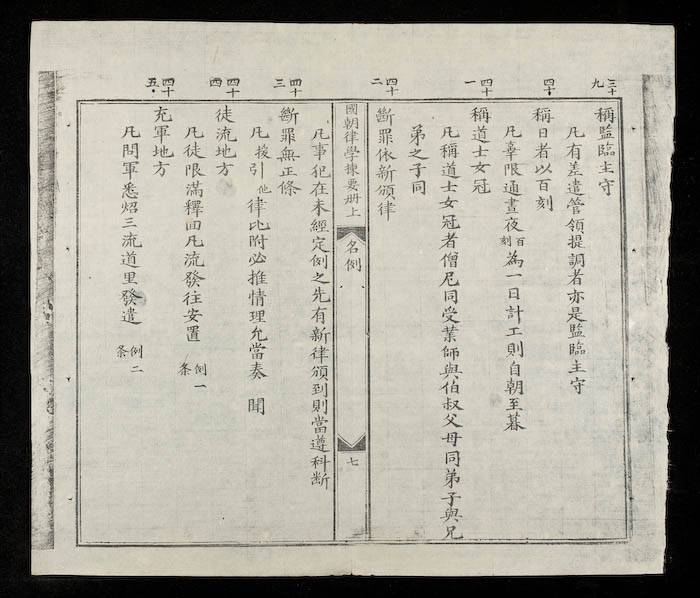 三十九
稱監臨主守
凡有差遣管領提調者亦是監臨主守
四十
稱日者以百刻
凡辜限通晝夜百刻為一日計工則自朝至暮
四十一
稱道士女冠
凡稱道士女冠者僧尼同受業師與伯叔父母同弟子與兄
弟之子同
四十二
斷罪依新頒律
國朝律學揀要册上
名例
七
凡事犯在未經定例之先有新律頒到則當遵科断
四十三
斷罪無正條
凡援引他律比附必推情理允當奏 聞
四十四
徒流地方
凡徒限滿釋囬凡流發往安置 例一条
四十五
充軍地方
凡問軍悉炤三流道里發遣 例二条